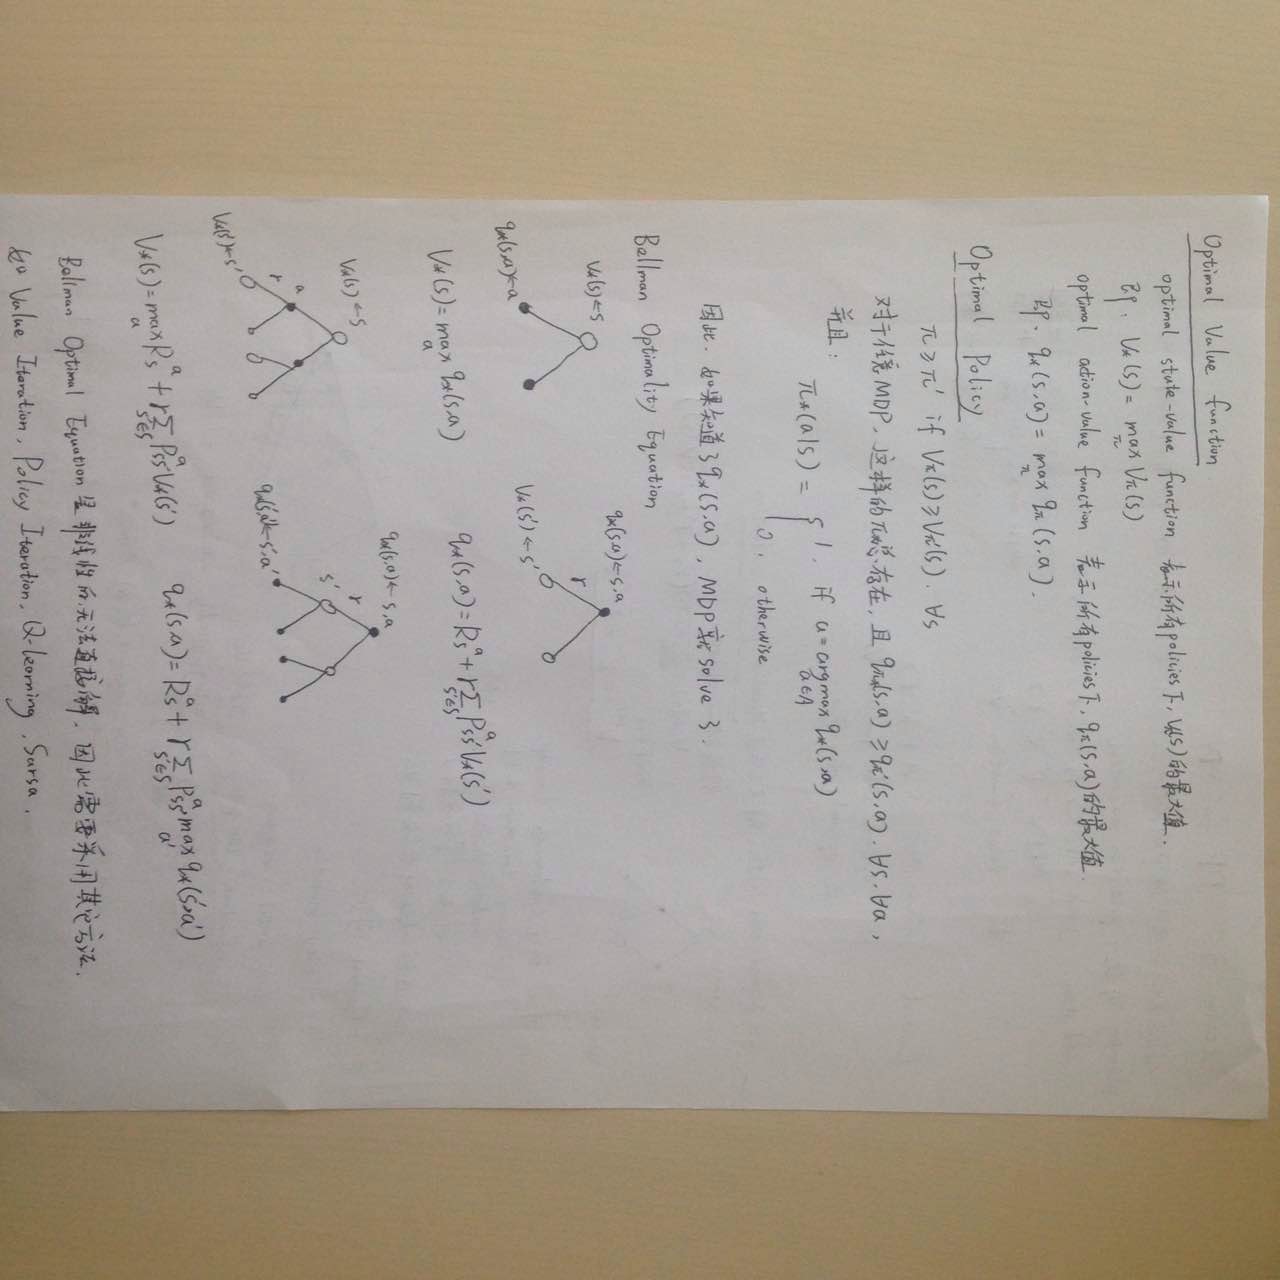 Optimal Value function
optimal state-value function 表示所有policies下, Vπ(s)的最大值.
即. V*(s) = max_π Vπ(s)
optimal action-value function 表示所有policies下, qπ(s,a)的最大值.
即. q*(s,a) = max_π qπ(s,a).
Optimal Policy
π ≥ π' if Vπ(s) ≥ Vπ'(s). ∀s
对于任意MDP, 这样的π*总存在, 且 qπ*(s,a) ≥ qπ'(s,a). ∀s. ∀a,
并且:
π*(a|s) = { 1. if a = argmax_{a∈A} q*(s,a)
0. otherwise
因此. 如果知道了q*(s,a), MDP就solve了.
Bellman Optimality Equation
V*(s) ← s
q*(s,a) ← s,a
r
q*(s,a) ← a
V*(s') ← s'
V*(s) = max_a q*(s,a)
q*(s,a) = R_s^a + γ∑_{s'∈S} P_{ss'}^a V*(s')
V*(s) ← s
q*(s,a) ← s,a
a
r
r
s'
V*(s') ← s'
q*(s',a') ← s',a'
V*(s) = max_a R_s^a + γ∑_{s'∈S} P_{ss'}^a V*(s')
q*(s,a) = R_s^a + γ∑_{s'∈S} P_{ss'}^a max_{a'} q*(s',a')
Bellman Optimal Equation 是非线性的,无法直接解. 因此需要采用其它方法.
如 Value Iteration, Policy Iteration, Q-learning, Sarsa.